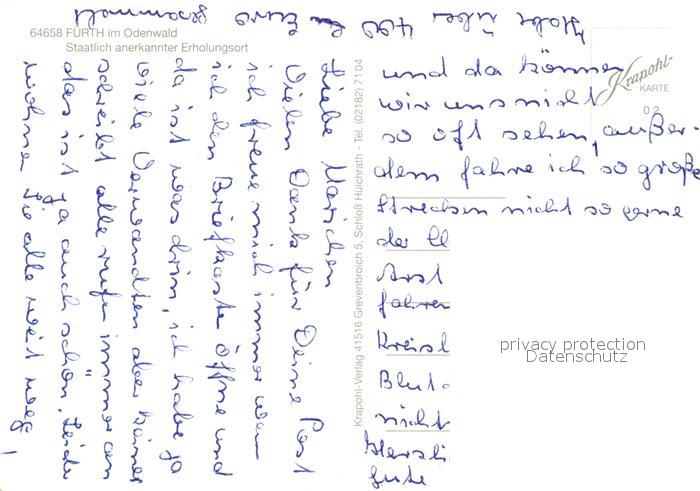 64658 FÜRTH im Odenwald
Staatlich anerkannter Erholungsort
Liebe
Vielen Dank für Deine Post
ich freue mich immer wenn
ich den Briefkasten öffne und
da ist was drin, ich habe ja
viele Verwandten aber keiner
schreibt alle rufen immer an
das ist ja auch schön, Leider
wohnen Sie alle weit weg,
und da können
wir uns nicht
so oft sehen, außer-
dem fahre ich so große
Strecken nicht so gerne
der
Arzt
fahren
Kreisl
Blut
nicht
Herzli
Gute
Habe über 400 Euro
gesammelt
Krapohl-Verlag 41516 Grevenbroich 5, Schloß Hülchrath - Tel. (02182) 71 04
Krapohl-
KARTE
02
privacy protection
Datenschutz